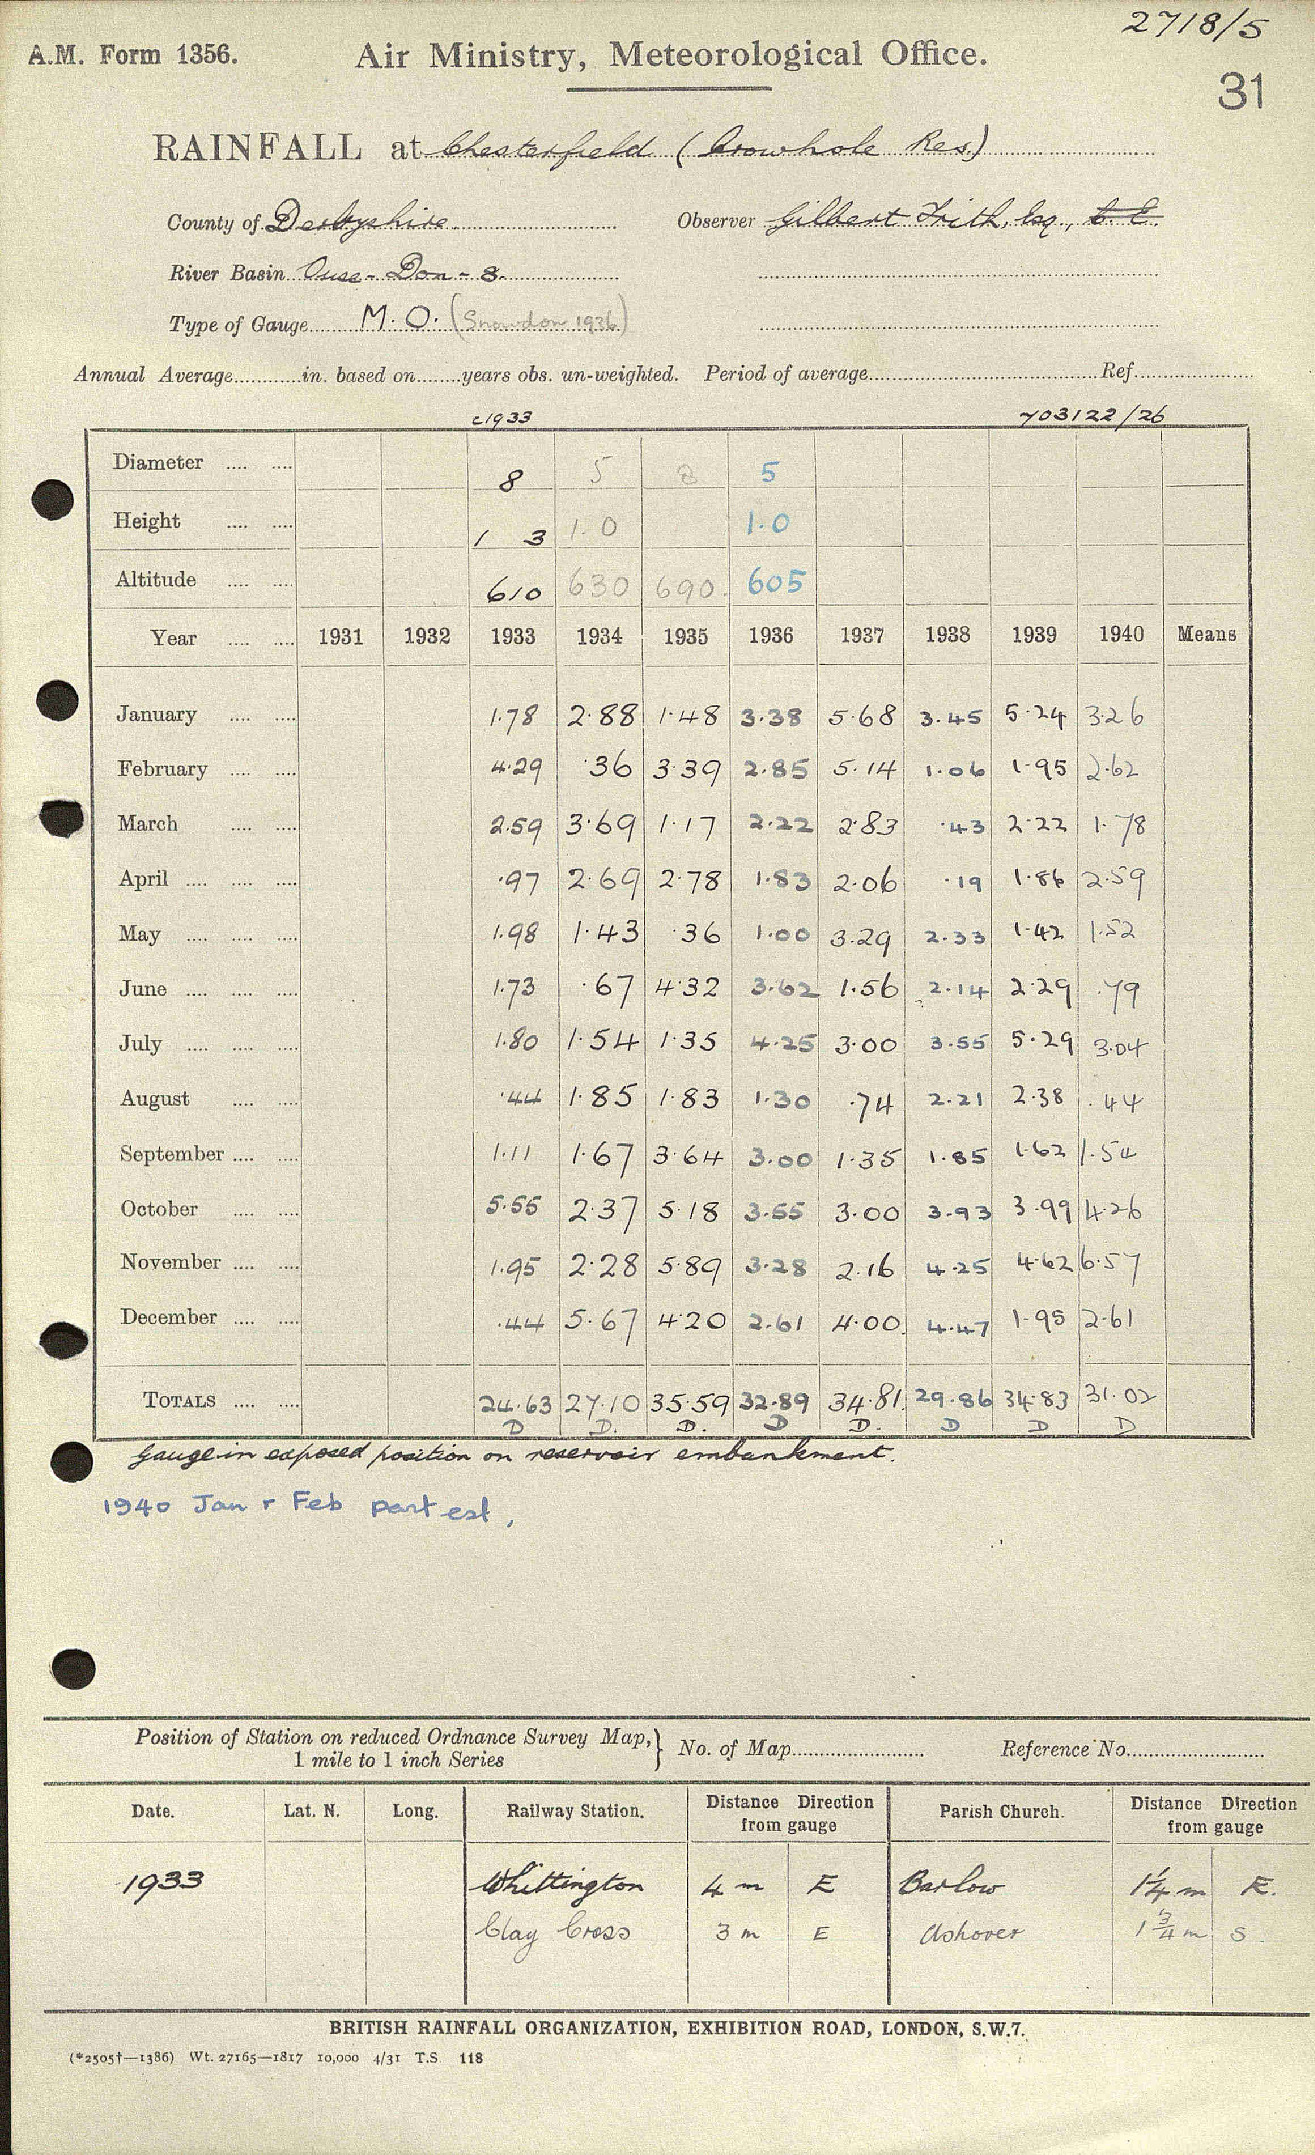 2718/5
A.M. Form 1356. Air Ministry, Meteorological Office.
31
RAINFALL at Chesterfield (Crowhole Res.)
County of Derbyshire. Observer Gilbert Frith, Esq., C.E.
River Basin Ouse - Don - 8.
Type of Gauge M.O. (Snowdon 1936)
Annual Average in. based on years obs. un-weighted. Period of average Ref.
c1933 703122/26
Diameter .... .... 8 5 8 5
Height .... .... 1 3 1.0 1.0
Altitude .... .... 610 630 690. 605
Year .... .... 1931 1932 1933 1934 1935 1936 1937 1938 1939 1940 Means
January .... .... 1.78 2.88 1.48 3.38 5.68 3.45 5.24 3.26
February .... .... 4.29 .36 3.39 2.85 5.14 1.06 1.95 2.62
March .... .... 2.59 3.69 1.17 2.22 2.83 .43 2.22 1.78
April .... .... .... .97 2.69 2.78 1.83 2.06 .19 1.86 2.59
May .... .... .... 1.98 1.43 .36 1.00 3.29 2.33 1.42 1.52
June .... .... .... 1.73 .67 4.32 3.62 1.56 2.14 2.29 .79
July .... .... .... 1.80 1.54 1.35 4.25 3.00 3.55 5.29 3.04
August .... .... .44 1.85 1.83 1.30 .74 2.21 2.38 .44
September .... .... 1.11 1.67 3.64 3.00 1.35 1.85 1.62 1.54
October .... .... 5.55 2.37 5.18 3.55 3.00 3.93 3.99 4.26
November .... .... 1.95 2.28 5.89 3.28 2.16 4.25 4.62 6.57
December .... .... .44 5.67 4.20 2.61 4.00. 4.47 1.95 2.61
TOTALS .... .... 24.63 27.10 35.59 32.89 34.81 29.86 34.83 31.02
D D. D. D D. D D D
Gauge in exposed position on reservoir embankment.
1940 Jan + Feb part est,
Position of Station on reduced Ordnance Survey Map,} No. of Map Reference No.
1 mile to 1 inch Series
Date. Lat. N. Long. Railway Station. Distance Direction from gauge Parish Church. Distance Direction from gauge
1933 Whittington 4 m E Barlow 1¼ m E.
Clay Cross 3 m E Ashover 1¾ m S.
BRITISH RAINFALL ORGANIZATION, EXHIBITION ROAD, LONDON, S.W.7.
(*2505†—1386) Wt. 27165—1817 10,000 4/31 T.S 118